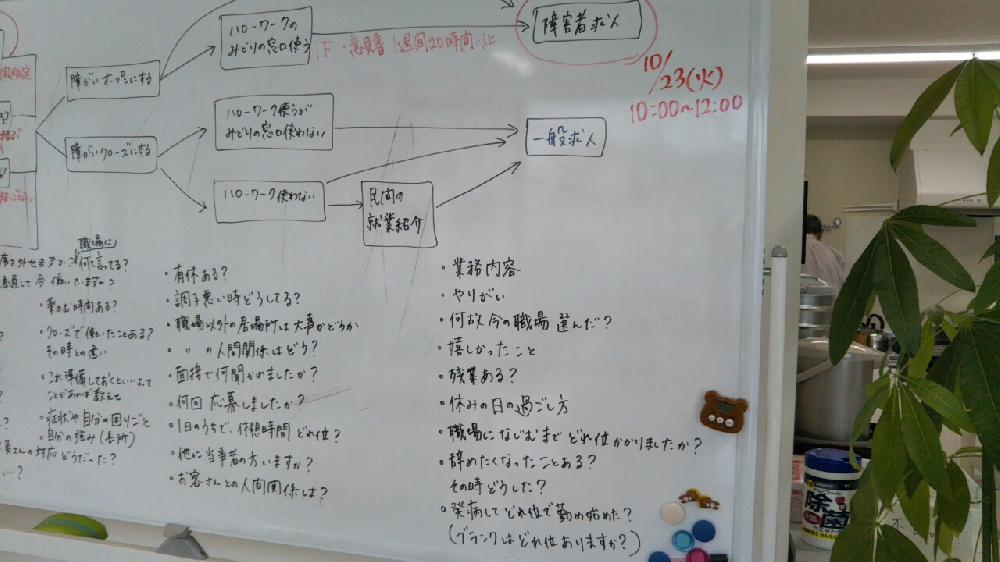 ハローワークの
みどりの窓口使う
F・意見書 1週間20時間以上
障害者求人
10/23(火)
10:00~12:00
障がいオープンにする
ハローワーク使うが
みどりの窓口使わない
障がいクローズにする
一般求人
ハローワーク使わない
民間の
就業紹介
職場に
何て言ってる?
薬のむ時間ある?
クローズで働いたことある?
その時との違い
これ準備しておくといいよって
ことがあれば教えて
症状や自分の困りごと
自分の強み(長所)
対応どうだった?
・有休ある?
・調子悪い時どうしてる?
・職場以外の居場所は大事かどうか
・〃 〃 人間関係はどう?
・面接で何聞かれましたか?
・何回応募しましたか?
・1日のうちで、休憩時間どれ位?
・他に当事者の方いますか?
・お客さんとの人間関係は?
・業務内容
・やりがい
・何故今の職場選んだ?
・嬉しかったこと
・残業ある?
・休みの日の過ごし方
・職場になじむまでどれ位かかりましたか?
・辞めたくなったことある?
その時どうした?
・発病してどれ位で勤め始めた?
(ブランクはどれ位ありますか?)
除菌